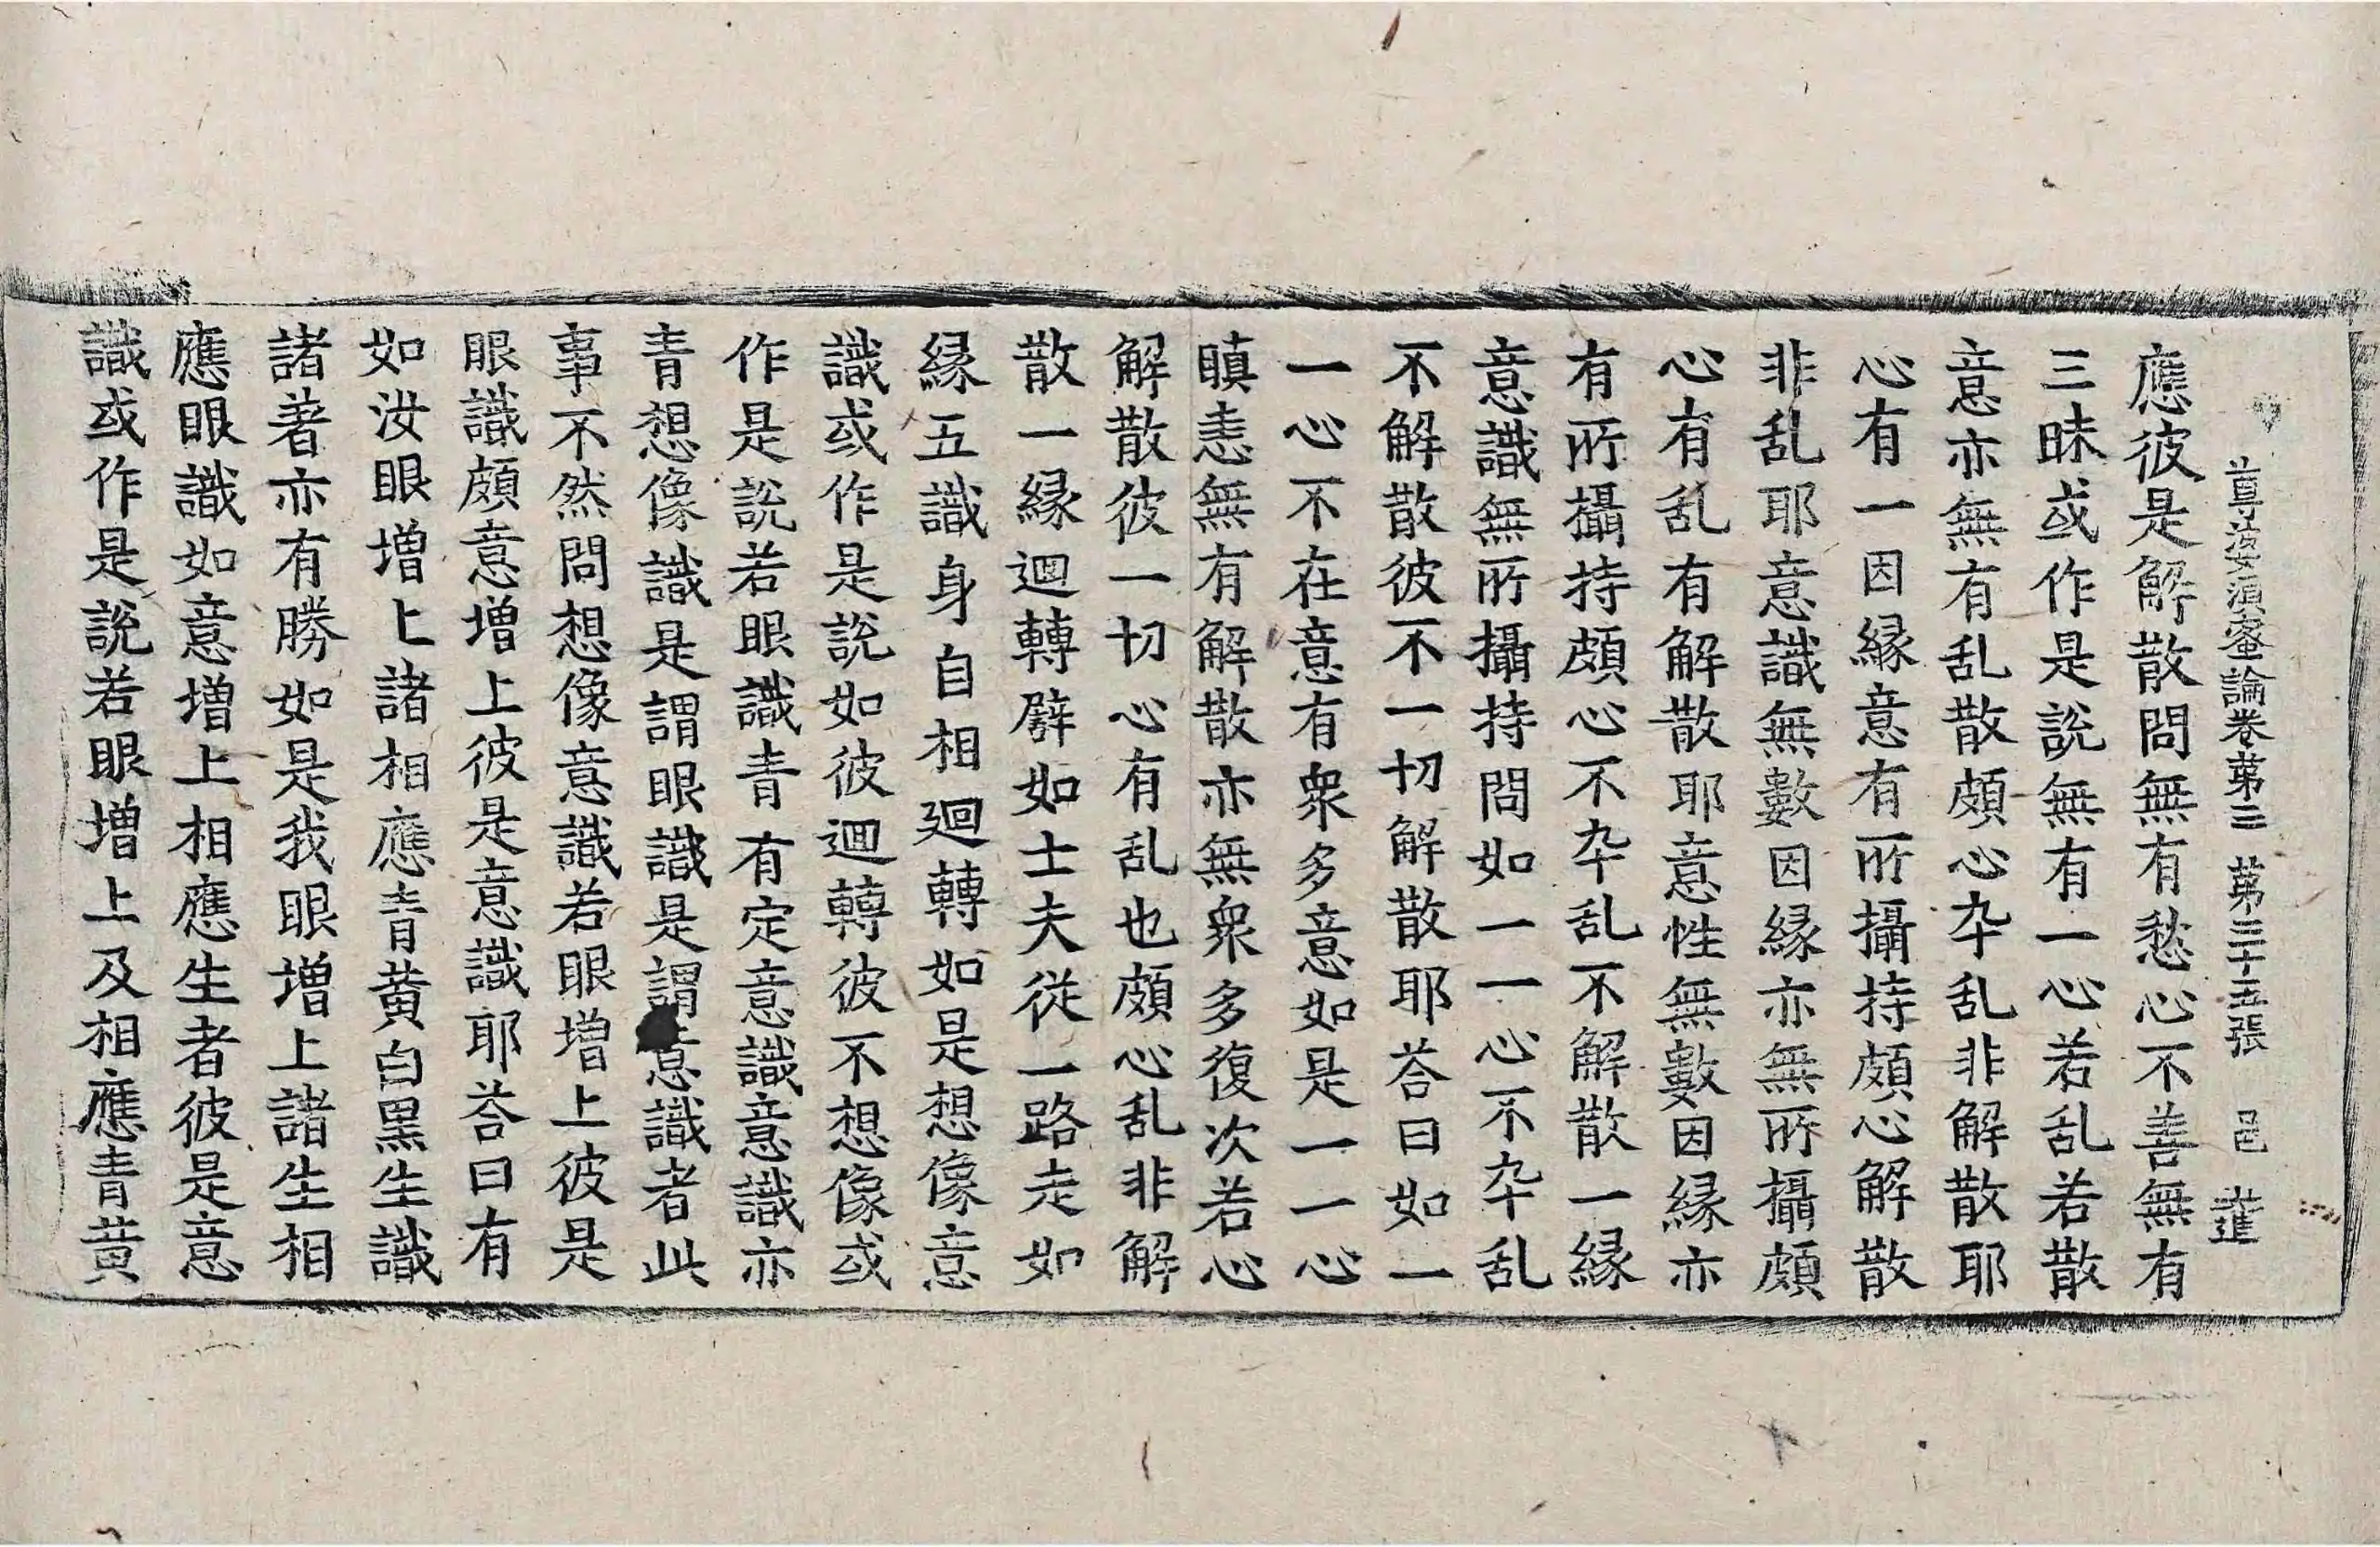 尊婆湏蜜論卷苐三 苐三十五張 邑
應彼是解散問無有愁心不善無有
三昧或作是說無有一心若乱若散
意亦無有乱散頗心卒乱非解散耶
心有一因縁意有所攝持頗心解散
非乱耶意識無數因縁亦無所攝頗
心有乱有解散耶意性無數因縁亦
有所攝持頗心不卒乱不解散一縁
意識無所攝持問如一一心不卒乱
不解散彼不一切解散耶荅曰如一
一心不在意有衆多意如是一一心
瞋恚無有解散亦無衆多復次若心
解散彼一切心有乱也頗心乱非解
散一縁迴轉譬如士夫從一路走如
縁五識身自相迴轉如是想像意
識或作是說如彼迴轉彼不想像或
作是說若眼識青有定意識意識亦
青想像識是謂眼識是謂意識者此
事不然問想像意識若眼增上彼是
眼識頗意增上彼是意識耶荅曰有
如汝眼增上諸相應青黃白黑生識
諸著亦有勝如是我眼增上諸生相
應眼識如意增上相應生者彼是意
識或作是說若眼增上及相應青黃